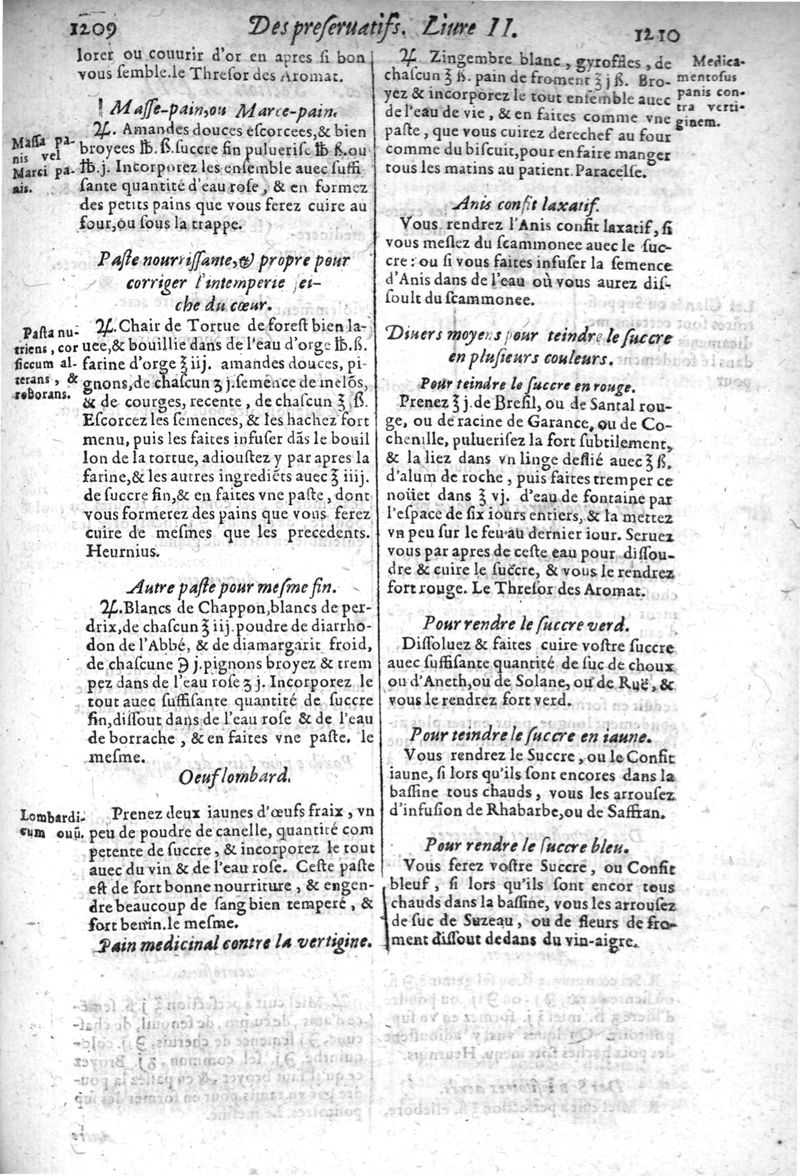 1209
Des preſeruatifs. Liure II.
1210
lorer ou couurir d'or en apres ſi bon
vous ſemble.le Threſor des Aromat.
Maſſe-pain,ou Marce-pain.
Maſſa pa-
nis vel
Marci pa-
nis.
℞. Amandes douces eſcorcees,& bien
broyees ℔.ß.ſuccre fin pulueriſe ℔ ß.ou
℔.j. Incorporez les enſemble auec ſuffi
ſante quantité d'eau roſe, & en formez
des petits pains que vous ferez cuire au
four,ou ſous la trappe.
Paſte nourriſſante,& propre pour
corriger l'intemperie ſei-
che du cœur.
Paſta nu-
triens, cor
ſiccum al-
terans, &
roborans.
℞.Chair de Tortue de foreſt bien la-
uee,& bouillie dans de l'eau d'orge ℔.ß.
farine d'orge ℥ iij. amandes douces, pi-
gnons,de chaſcun ʒ j.ſemence de melõs,
& de courges, recente, de chaſcun ℥ ß.
Eſcorcez les ſemences, & les hachez fort
menu, puis les faites infuſer dãs le bouil
lon de la tortue, adiouſtez y par apres la
farine,& les autres ingrediẽts auec ℥ iiij.
de ſuccre fin,& en faites vne paſte, dont
vous formerez des pains que vous ferez
cuire de meſmes que les precedents.
Heurnius.
Autre paſte pour meſme fin.
℞.Blancs de Chappon,blancs de per-
drix,de chaſcun ℥ iij.poudre de diarrho-
don de l'Abbé, & de diamargarit froid,
de chaſcune ℈ j.pignons broyez & trem
pez dans de l'eau roſe ʒ j. Incorporez le
tout auec ſuffiſante quantité de ſuccre
fin,diſſout dans de l'eau roſe & de l'eau
de borrache, & en faites vne paſte. le
meſme.
Oeuf lombard.
Lombardi-
cum ouũ.
Prenez deux iaunes d'œufs fraix, vn
peu de poudre de canelle, quantité com
petente de ſuccre, & incorporez le tout
auec du vin & de l'eau roſe. Ceſte paſte
eſt de fort bonne nourriture, & engen-
dre beaucoup de ſang bien temperé, &
fort benin.le meſme.
Pain medicinal contre la vertigine.
Medica-
mentoſus
panis con-
tra verti-
ginem.
℞. Zingembre blanc, gyroffles, de
chaſcun ℥ ß. pain de froment ℥ j ß. Bro-
yez & incorporez le tout enſemble auec
de l'eau de vie, & en faites comme vne
paſte, que vous cuirez derechef au four
comme du biſcuit,pour en faire manger
tous les matins au patient. Paracelſe.
Anis confit laxatif.
Vous rendrez l'Anis confit laxatif, ſi
vous meſlez du ſcammonee auec le ſuc-
cre: ou ſi vous faites infuſer la ſemence
d'Anis dans de l'eau où vous aurez diſ-
ſoult du ſcammonee.
Diuers moyens pour teindre le ſuccre
en pluſieurs couleurs.
Pour teindre le ſuccre en rouge.
Prenez ℥ j.de Breſil, ou de Santal rou-
ge, ou de racine de Garance, ou de Co-
chenille, puluerisez la fort ſubtilement,
& la liez dans vn linge deſlié auec ℥ ß.
d'alum de roche, puis faites tremper ce
noüet dans ℥ vj. d'eau de fontaine par
l'eſpace de ſix iours entiers, & la mettez
vn peu ſur le feu au dernier iour. Seruez
vous par apres de ceſte eau pour diſſou-
dre & cuire le ſuccre, & vous le rendrez
fort rouge. Le Threſor des Aromat.
Pour rendre le ſuccre verd.
Diſſoluez & faites cuire voſtre ſuccre
auec ſuffiſante quantité de ſuc de choux
ou d'Aneth,ou de Solane, ou de Ruë, &
vous le rendrez fort verd.
Pour teindre le ſuccre en iaune.
Vous rendrez le Succre, ou le Confit
iaune, ſi lors qu'ils ſont encores dans la
baſſine tous chauds, vous les arrouſez
d'infuſion de Rhabarbe,ou de Saffran.
Pour rendre le ſuccre bleu.
Vous ferez voſtre Succre, ou Confit
bleuf, ſi lors qu'ils ſont encor tous
chauds dans la baſſine, vous les arrouſez
de ſuc de Suzeau, ou de fleurs de fro-
ment diſſout dedans du vin-aigre.